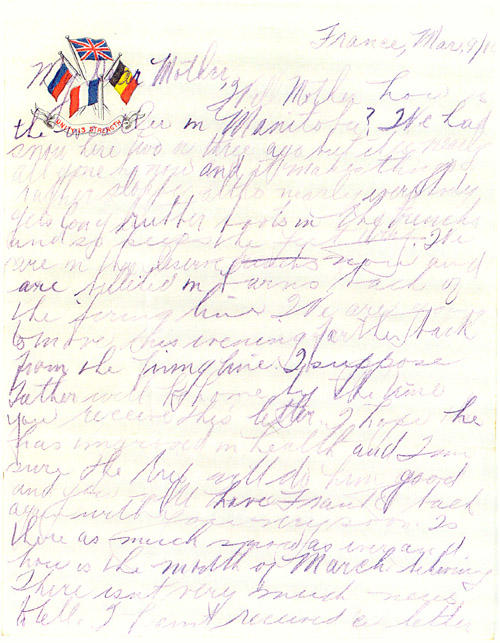 France, Mar. 9/
My Dear Mother,
UNITY IS STRENGTH
Well Mother how is
the in Manitoba? We had
snow here two or three ago but it is nearly
all gone now and it makes things
rather sloppy altho nearly everybody
gets long rubber boots in the trenches
and so keeps the dry. We
are in the reserve now and
are billeted in barns back of
the firing line. We are
to move this evening farther back
from the firing line. I suppose
Father will be home by the time
you receive this letter. I hope he
has improved in health and I am
sure the trip will do him good
and you will have Frank back
again with you very soon. Is
there as much snow as ever and
how is the month of March behaving
There isn't very much news
to tell. I haven't received a letter